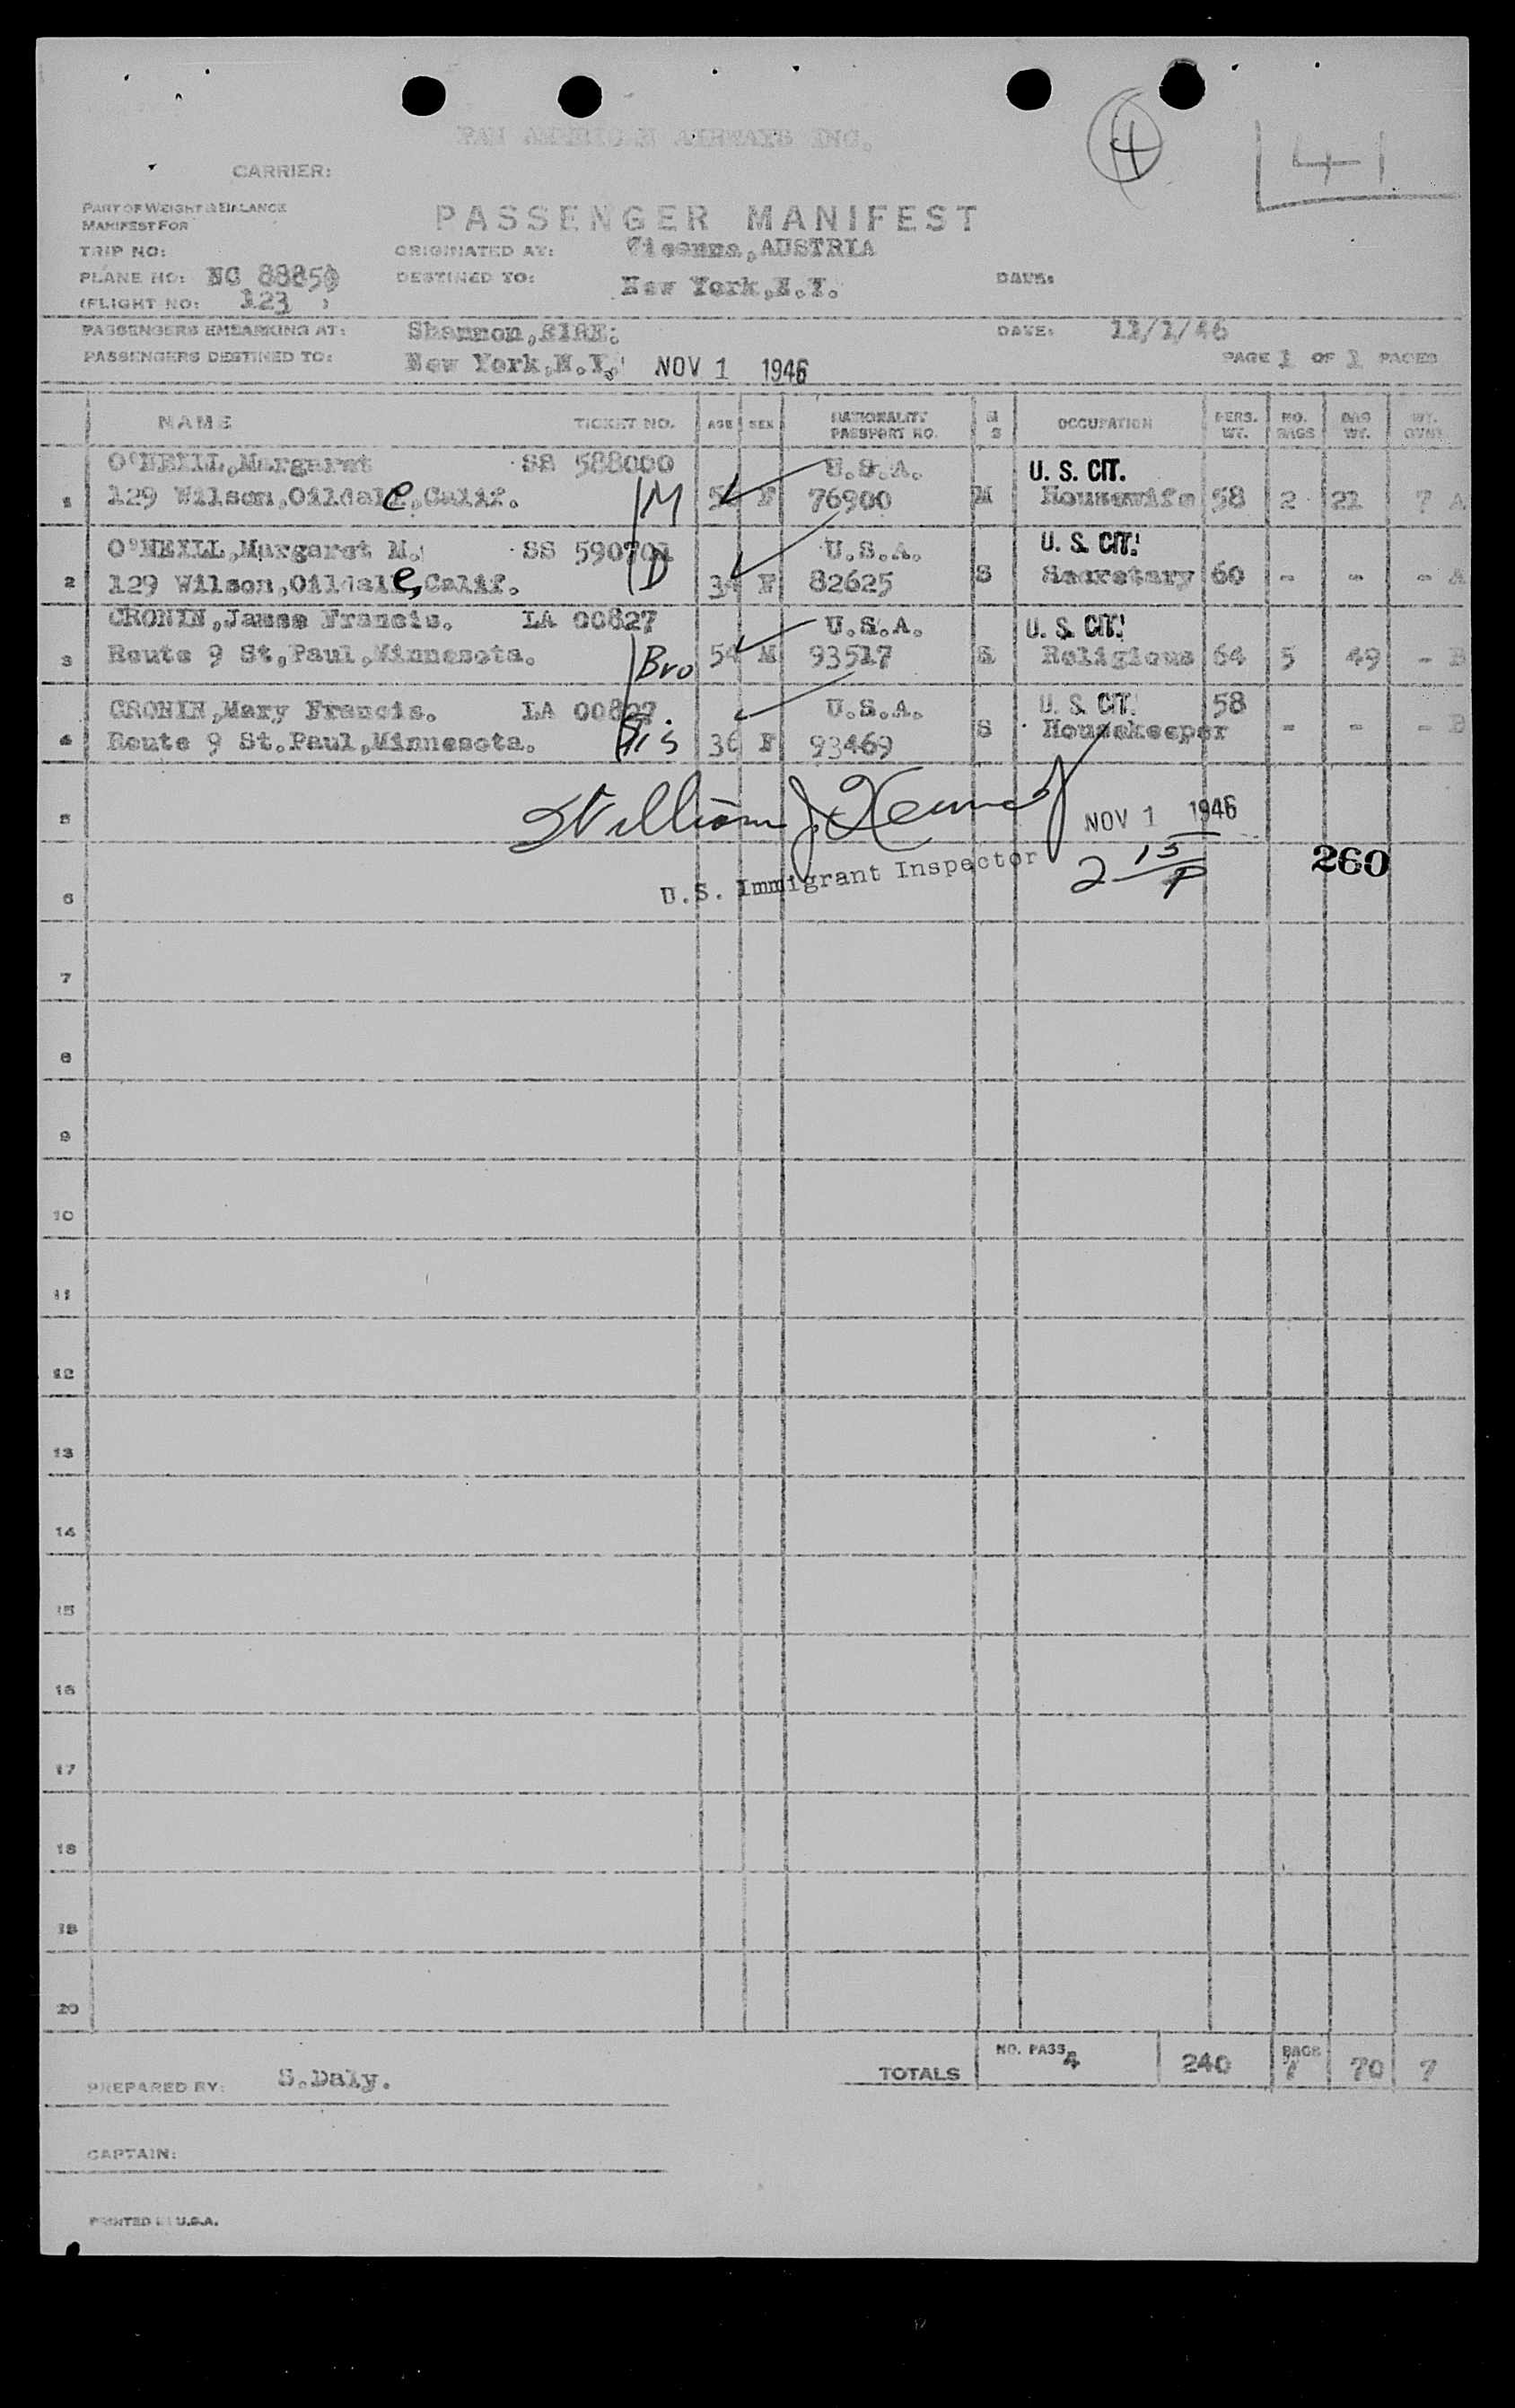 4
41
PAN AMERICAN AIRWAYS INC.
CARRIER:
PART OF WEIGHT & BALANCE
MANIFEST FOR
PASSENGER MANIFEST
TRIP NO: ORIGINATED AT: Vienna, AUSTRIA
PLANE NO: NC 88859 DESTINED TO: New York, N.Y. DATE:
(FLIGHT NO: 123 )
PASSENGERS EMBARKING AT: Shannon, EIRE: DATE: 11/1/46
PASSENGERS DESTINED TO: New York, N.Y. NOV 1 1946 PAGE 1 OF 1 PAGES
NAME TICKET NO. AGE SEX NATIONALITY PASSPORT NO. M S OCCUPATION PERS. WT. NO. BAGS BAG WT. WT.
O'NEILL, Margaret SS 588000 U.S.A. U. S. CIT.
1 129 Wilson, Oildale, Calif. M F 76900 M Housewife 58 2 21 7 A
O'NEILL, Margaret M. SS U.S.A. U. S. CIT.
2 129 Wilson, Oildale, Calif. D F 82625 S Secretary 60 - - - A
CRONIN, James Francis. LA 00827 U.S.A. U. S. CIT.
3 Route 9 St. Paul, Minnesota. Bro 54 M 93517 S Religious 64 5 49 - B
CRONIN, Mary Francis. LA 00827 U.S.A. U. S. CIT. 58
4 Route 9 St. Paul, Minnesota. Sis 36 F 93469 S Housekeeper - - - B
5 William J. NOV 1 1946
6 U.S. Immigrant Inspector 2 15 P 260
7
8
9
10
11
12
13
14
15
16
17
18
19
20
TOTALS NO. PASS. 4 240 BAGS 7 70 7
PREPARED BY: S. Daly.
CAPTAIN:
PRINTED IN U.S.A.